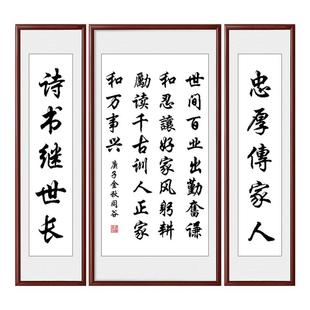 忠厚傳家人
世间百业出勤奮谦
和忍讓好家风躬耕
勵读千古训人正家
和万事兴
庚子金秋同谷
诗书继世长